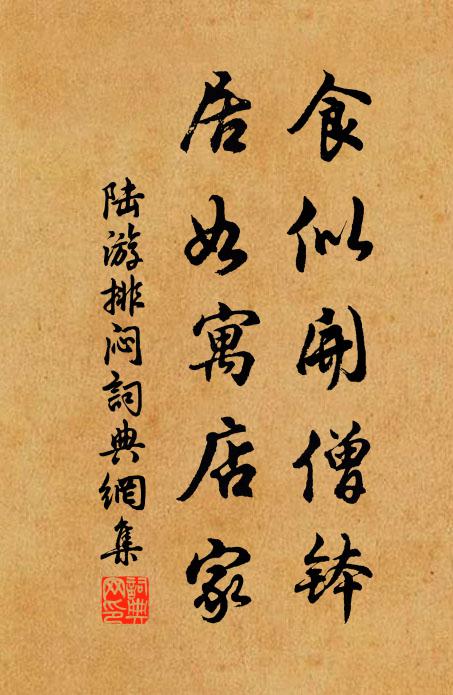 食似開僧鉢
居如寓店家
陆游排闷詞典網集
詞典网印